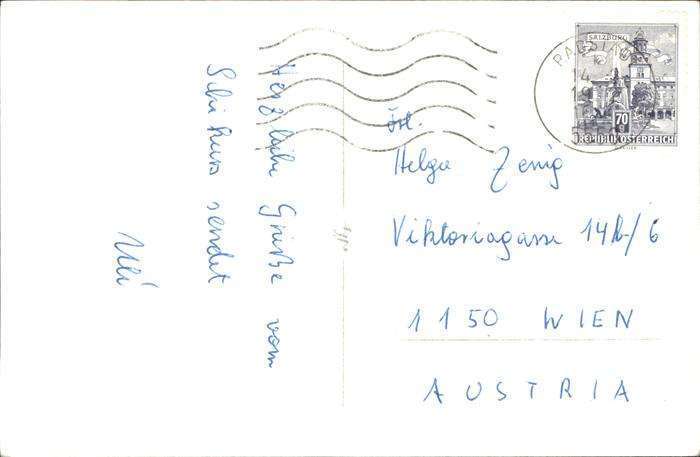 Herzliche Grüße vom
Schikurs sendet
Uli
SALZBURG
70
REPUBLIK ÖSTERREICH
Frl.
Helga Zenig
Viktoriagasse 14b/6
1150 WIEN
AUSTRIA